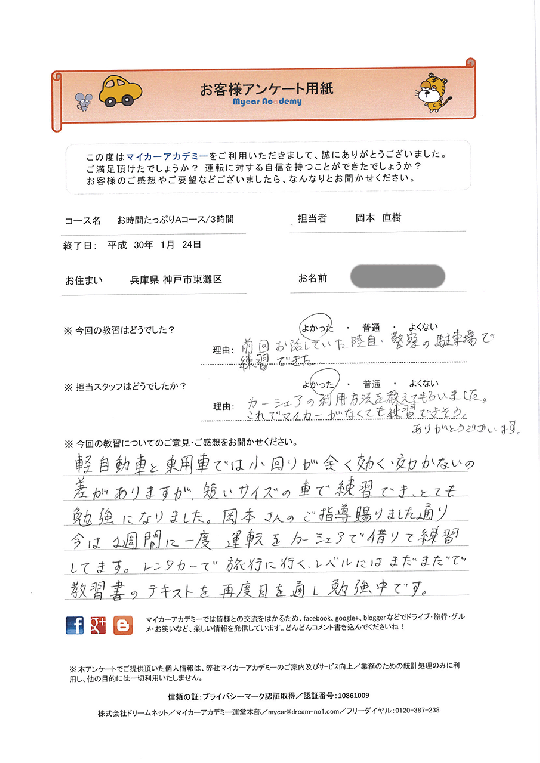 お客様アンケート用紙
Mycar Academy
この度はマイカーアカデミーをご利用いただきまして、誠にありがとうございました。
ご満足頂けたでしょうか？ 運転に対する自信を持つことができたでしょうか？
お客様のご感想やご要望などございましたら、なんなりとお聞かせください。
コース名 お時間たっぷりAコース/3時間 担当者 岡本 直樹
終了日： 平成 30年 1月 24日
お住まい 兵庫県 神戸市東灘区 お名前
※ 今回の教習はどうでした？ よかった ・ 普通 ・ よくない
理由： 前回お話していた陸自、警察の駐車場で
練習できた
※ 担当スタッフはどうでしたか？ よかった ・ 普通 ・ よくない
理由： カーシェアの利用方法を教えてもらいました。
これでマイカーがなくても練習できそう。
ありがとうございます。
※ 今回の教習についてのご意見・ご感想をお聞かせください。
軽自動車と乗用車では小回りが全く効く・効かないの
差がありますが、短いサイズの車で練習でき、とても
勉強になりました。岡本さんのご指導賜りました通り
今は2週間に一度 運転をカーシェアで借りて練習
してます。レンタカーで旅行に行くレベルにはまだまだで
教習書のテキストを再度目を通し勉強中です。
マイカーアカデミーでは皆様との交流をはかるため、facebook、google+、bloggerなどでドライブ・旅行・グル
メ・お笑いなど、楽しい情報を発信しています。どんどんコメント書き込んでくださいね！
※ 本アンケートでご提供頂いた個人情報は、弊社マイカーアカデミーのご案内及びサービス向上／業務のための統計処理のみに利
用し、他の目的には一切利用いたしません。
信頼の証：プライバシーマーク認証取得／認証番号：10861009
株式会社ドリームネット／マイカーアカデミー運営本部／mycar@dream-no1.com／フリーダイヤル：0120-387-238